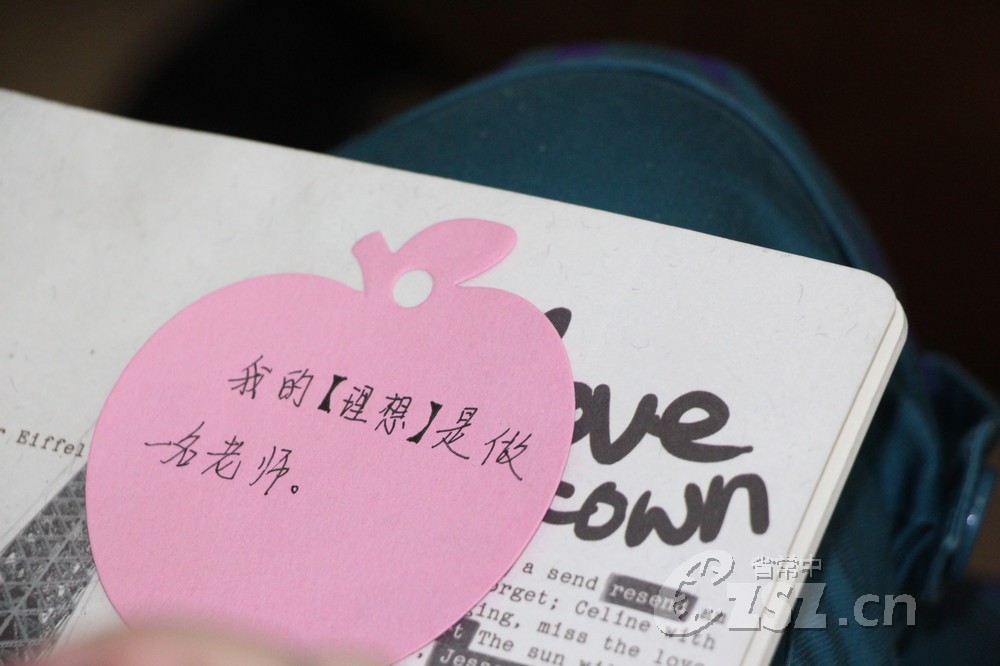 我的【理想】是做
一名老师。
Eiffel
ove
town
a send resend
orget; Celine with
miss the love
The sun
省常中
ZSZ.cn